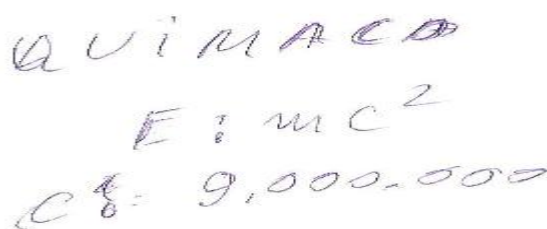 QUIMACO
E : mc²
C : 9,000.000